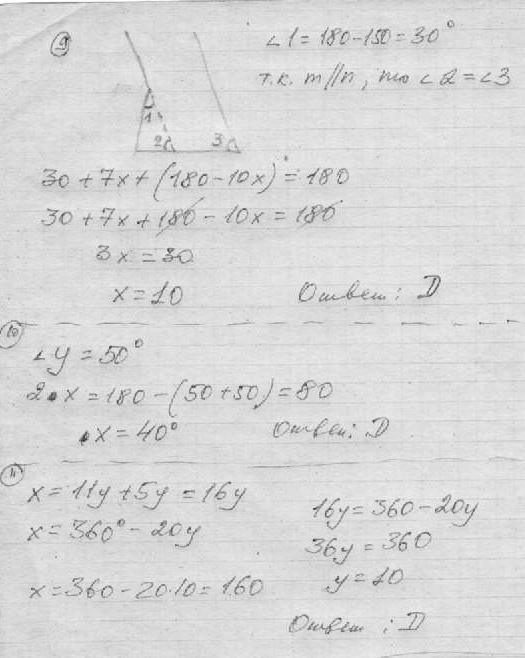 9
∠1 = 180-150 = 30°
т.к. m//n, то ∠2 = ∠3
1
2
3
30 + 7x + (180 - 10x)° = 180
30 + 7x + 180 - 10x = 180
3x = 30
x = 10
Ответ: D
10
∠y = 50°
2•x = 180 - (50 + 50) = 80
•x = 40°
Ответ: D
11
x = 11y + 5y = 16y
x = 360° - 20y
x = 360 - 20·10 = 160
16y = 360 - 20y
36y = 360
y = 10
Ответ: D